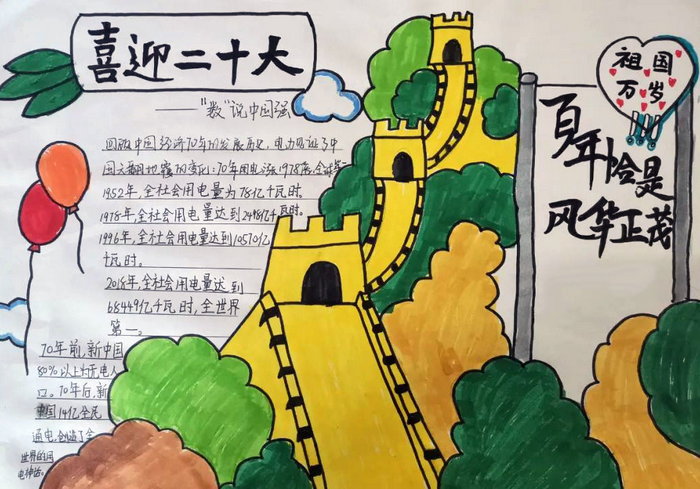 喜迎二十大
——"数"说中国强
回报中国经济70年的发展历史,电力见证了中
国天翻地覆的变化:70年用电涨1978亮,全球第一
1952年,全社会用电量为78亿千瓦时。
1978年,全社会用电量达到2498亿千瓦时。
1996年,全社会用电量达到10570亿
千瓦时。
2018年,全社会用电量达到
68449亿千瓦时,全世界
第一。
70年前,新中国
80%以上为无电人
口。70年后,新
中国14亿全民
通电,创造了全
世界的用
电神话。
祖国
万岁
百年恰是
风华正茂